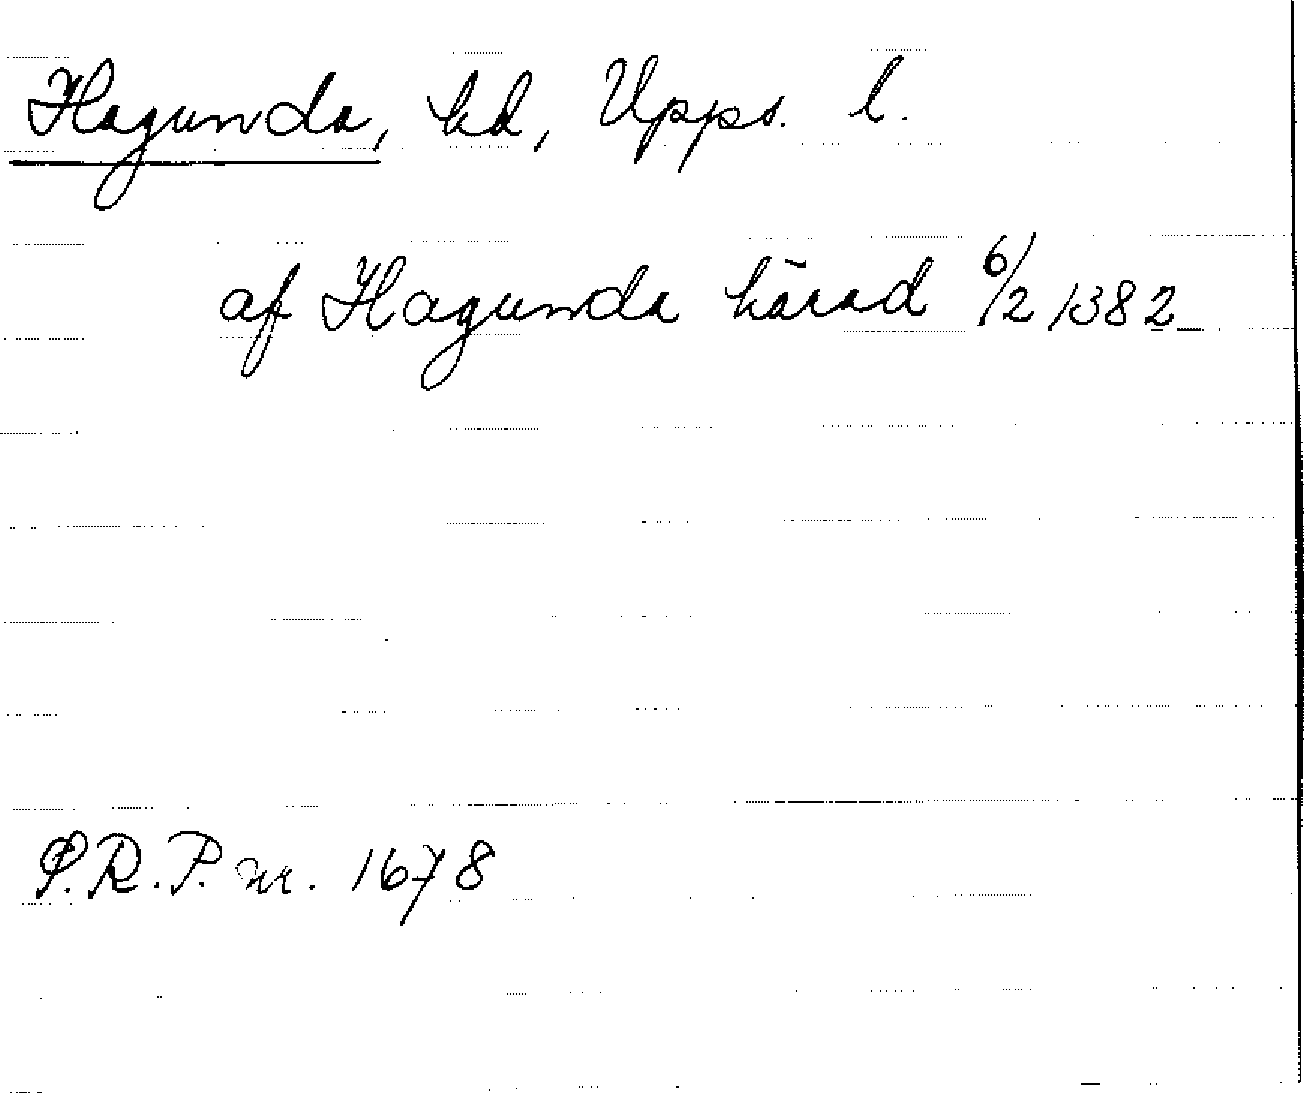 Hagunda, hd, Upps. l.
af Hagunda härad 6/2 1382
S.R.P. nr. 1678